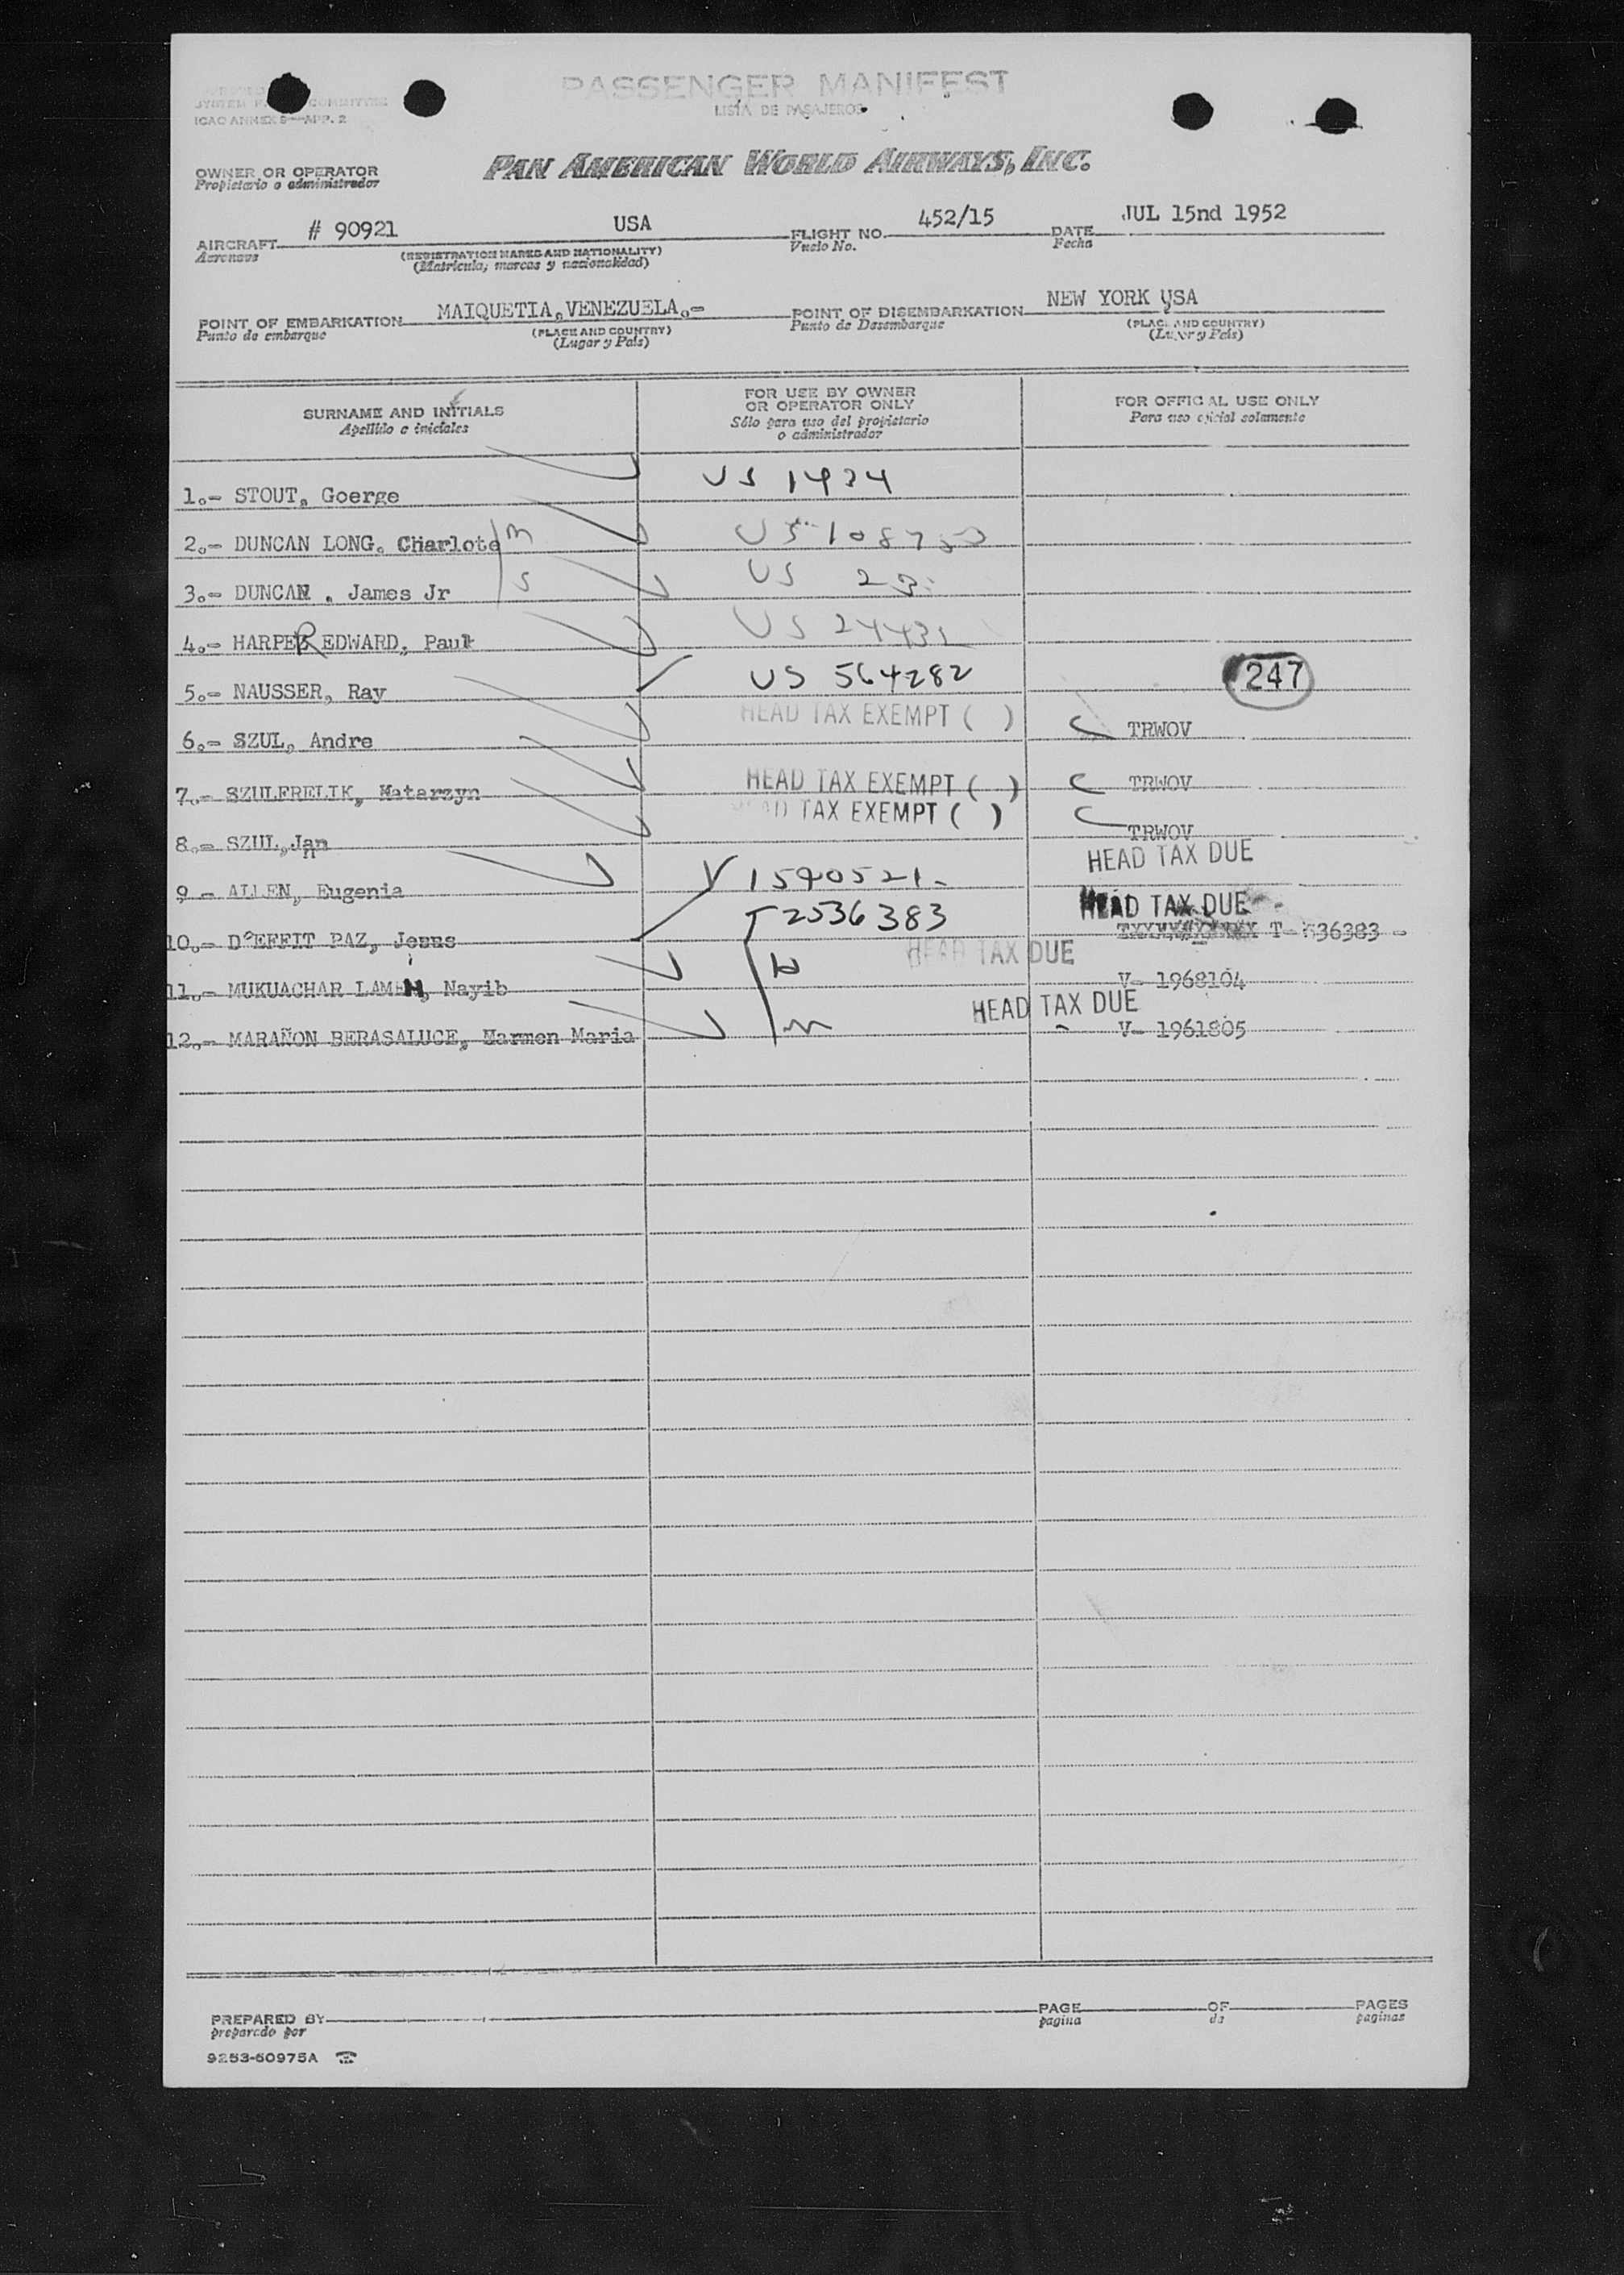 PASSENGER MANIFEST
LISTA DE PASAJEROS
COMMITTEE
ICAO ANNEX 9—APP. 2
OWNER OR OPERATOR
Propietario o administrador
PAN AMERICAN WORLD AIRWAYS, INC.
AIRCRAFT # 90921 USA FLIGHT NO. 452/15 DATE JUL 15nd 1952
Aeronave (REGISTRATION MARKS AND NATIONALITY) Vuelo No. Fecha
(Matricula, marcas y nacionalidad)
POINT OF EMBARKATION MAIQUETIA, VENEZUELA.- POINT OF DISEMBARKATION NEW YORK USA
Punto de embarque (PLACE AND COUNTRY) Punto de Desembarque (PLACE AND COUNTRY)
(Lugar y País) (Lugar y País)
SURNAME AND INITIALS FOR USE BY OWNER OR OPERATOR ONLY FOR OFFICIAL USE ONLY
Apellido e iniciales Sólo para uso del propietario o administrador Para uso oficial solamente
1.- STOUT, Goerge US 1424
2.- DUNCAN LONG. Charlote m US
3.- DUNCAN . James Jr S US
4.- HARPER EDWARD, Paul US
5.- NAUSSER, Ray US 564282 247
6.- SZUL, Andre HEAD TAX EXEMPT ( ) C TRWOV
7.- SZULFRELIK, Katarzyn HEAD TAX EXEMPT ( ) C TRWOV
8.- SZUL, Jan HEAD TAX EXEMPT ( ) C TRWOV
HEAD TAX DUE
9.- ALLEN, Eugenia V 1590521-
HEAD TAX DUE
10.- D'EFFIT PAZ, Jesus T2536383 T- 536383 -
HEAD TAX DUE
11.- MUKUACHAR LAMEH, Nayib H V- 1968104
HEAD TAX DUE
12.- MARAÑON BERASALUCE, Marmen Maria m V- 1961805
PREPARED BY PAGE OF PAGES
preparado por pagina de paginas
9253-50975A